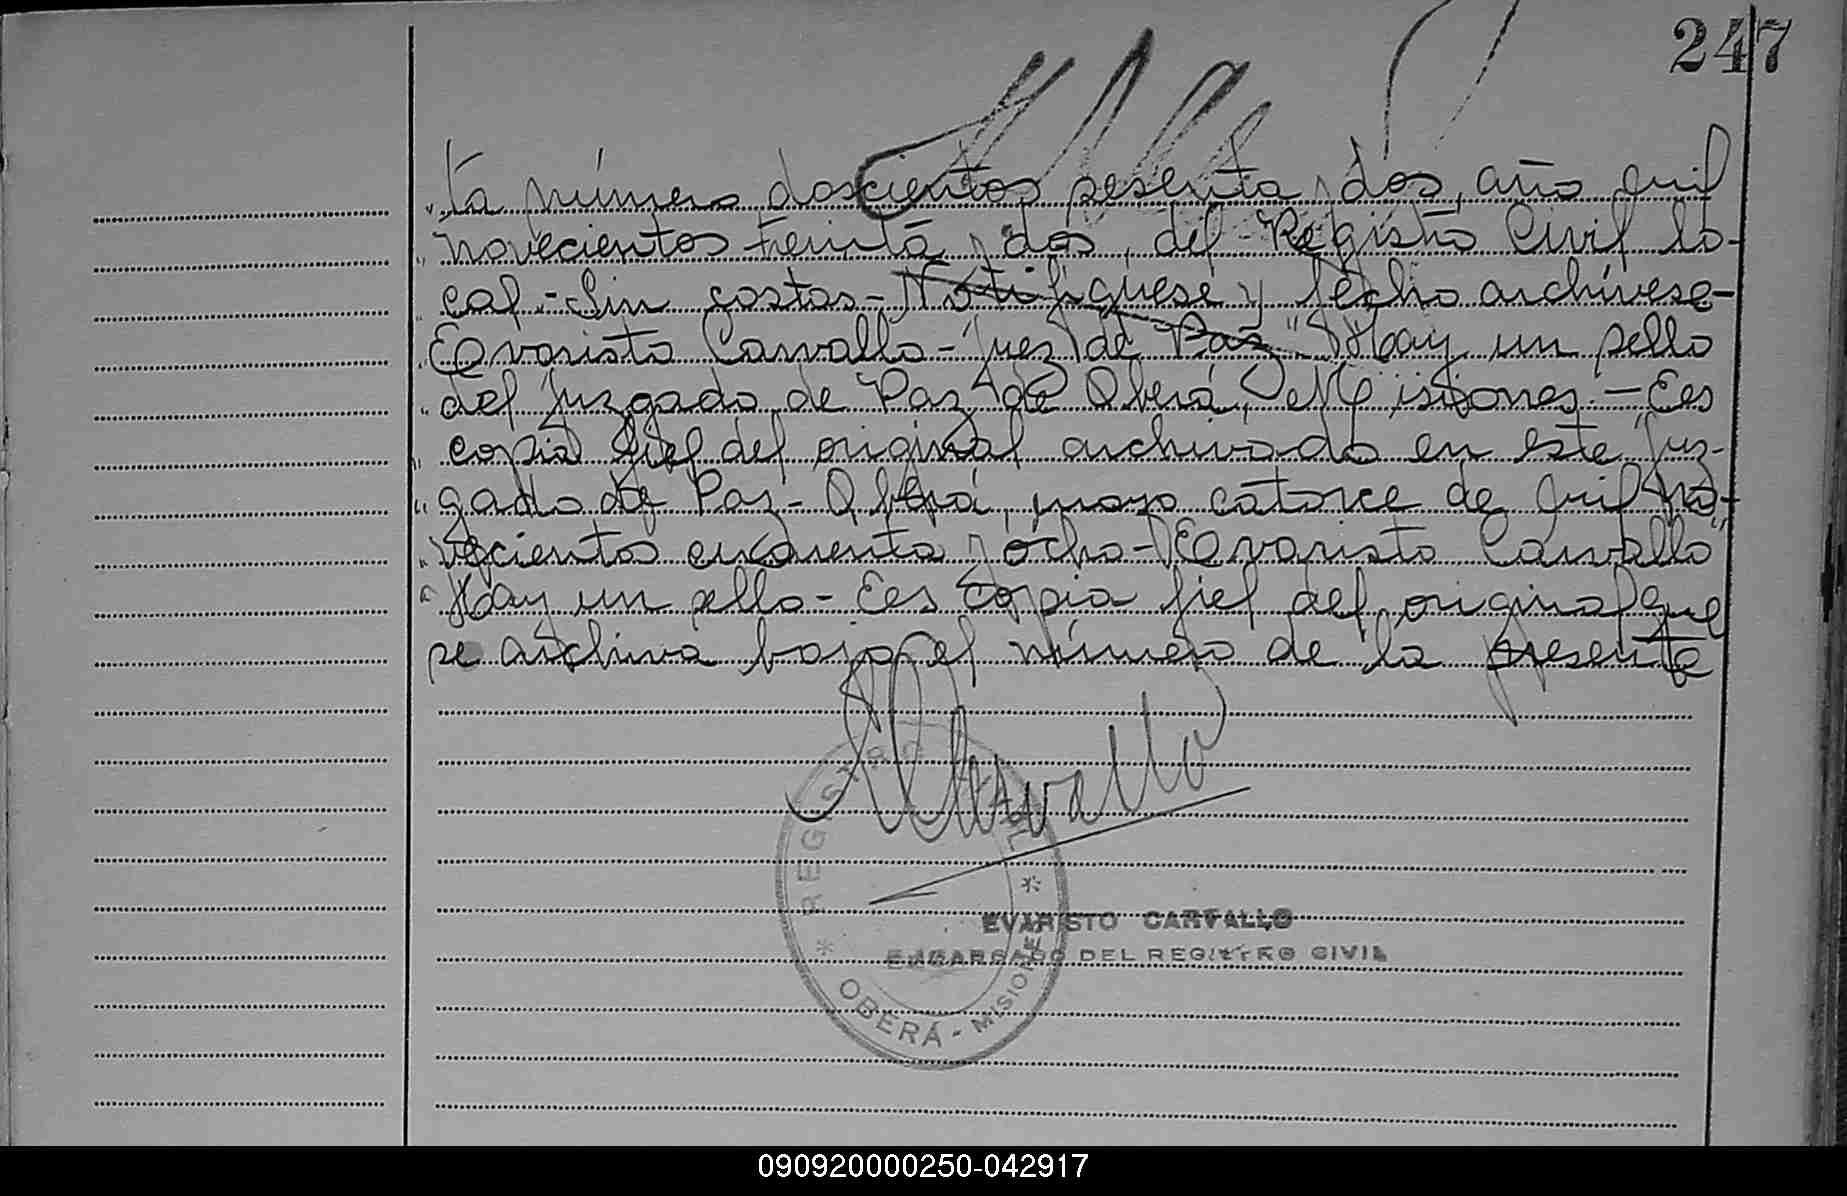 247
"ta número doscientos sesenta y dos, año mil
"novecientos treinta y dos, del Registro Civil lo-
"cal.- Sin costas- Notifíquese y fecho archívese-
"Evaristo Carvallo- Juez de Paz" Hay un sello
"del Juzgado de Paz de Oberá, Misiones.- Es
"copia fiel del original archivado en este Juz-
"gado de Paz- Oberá, mayo catorce de mil no-
"vecientos cuarenta y ocho- Evaristo Carvallo"
"Hay un sello- Es copia fiel del original que
se archiva bajo el número de la presente
Carvallo
REGISTRO CIVIL
EVARISTO CARVALLO
ENCARGADO DEL REGISTRO CIVIL
* OBERÁ - MISIONES *
090920000250-042917